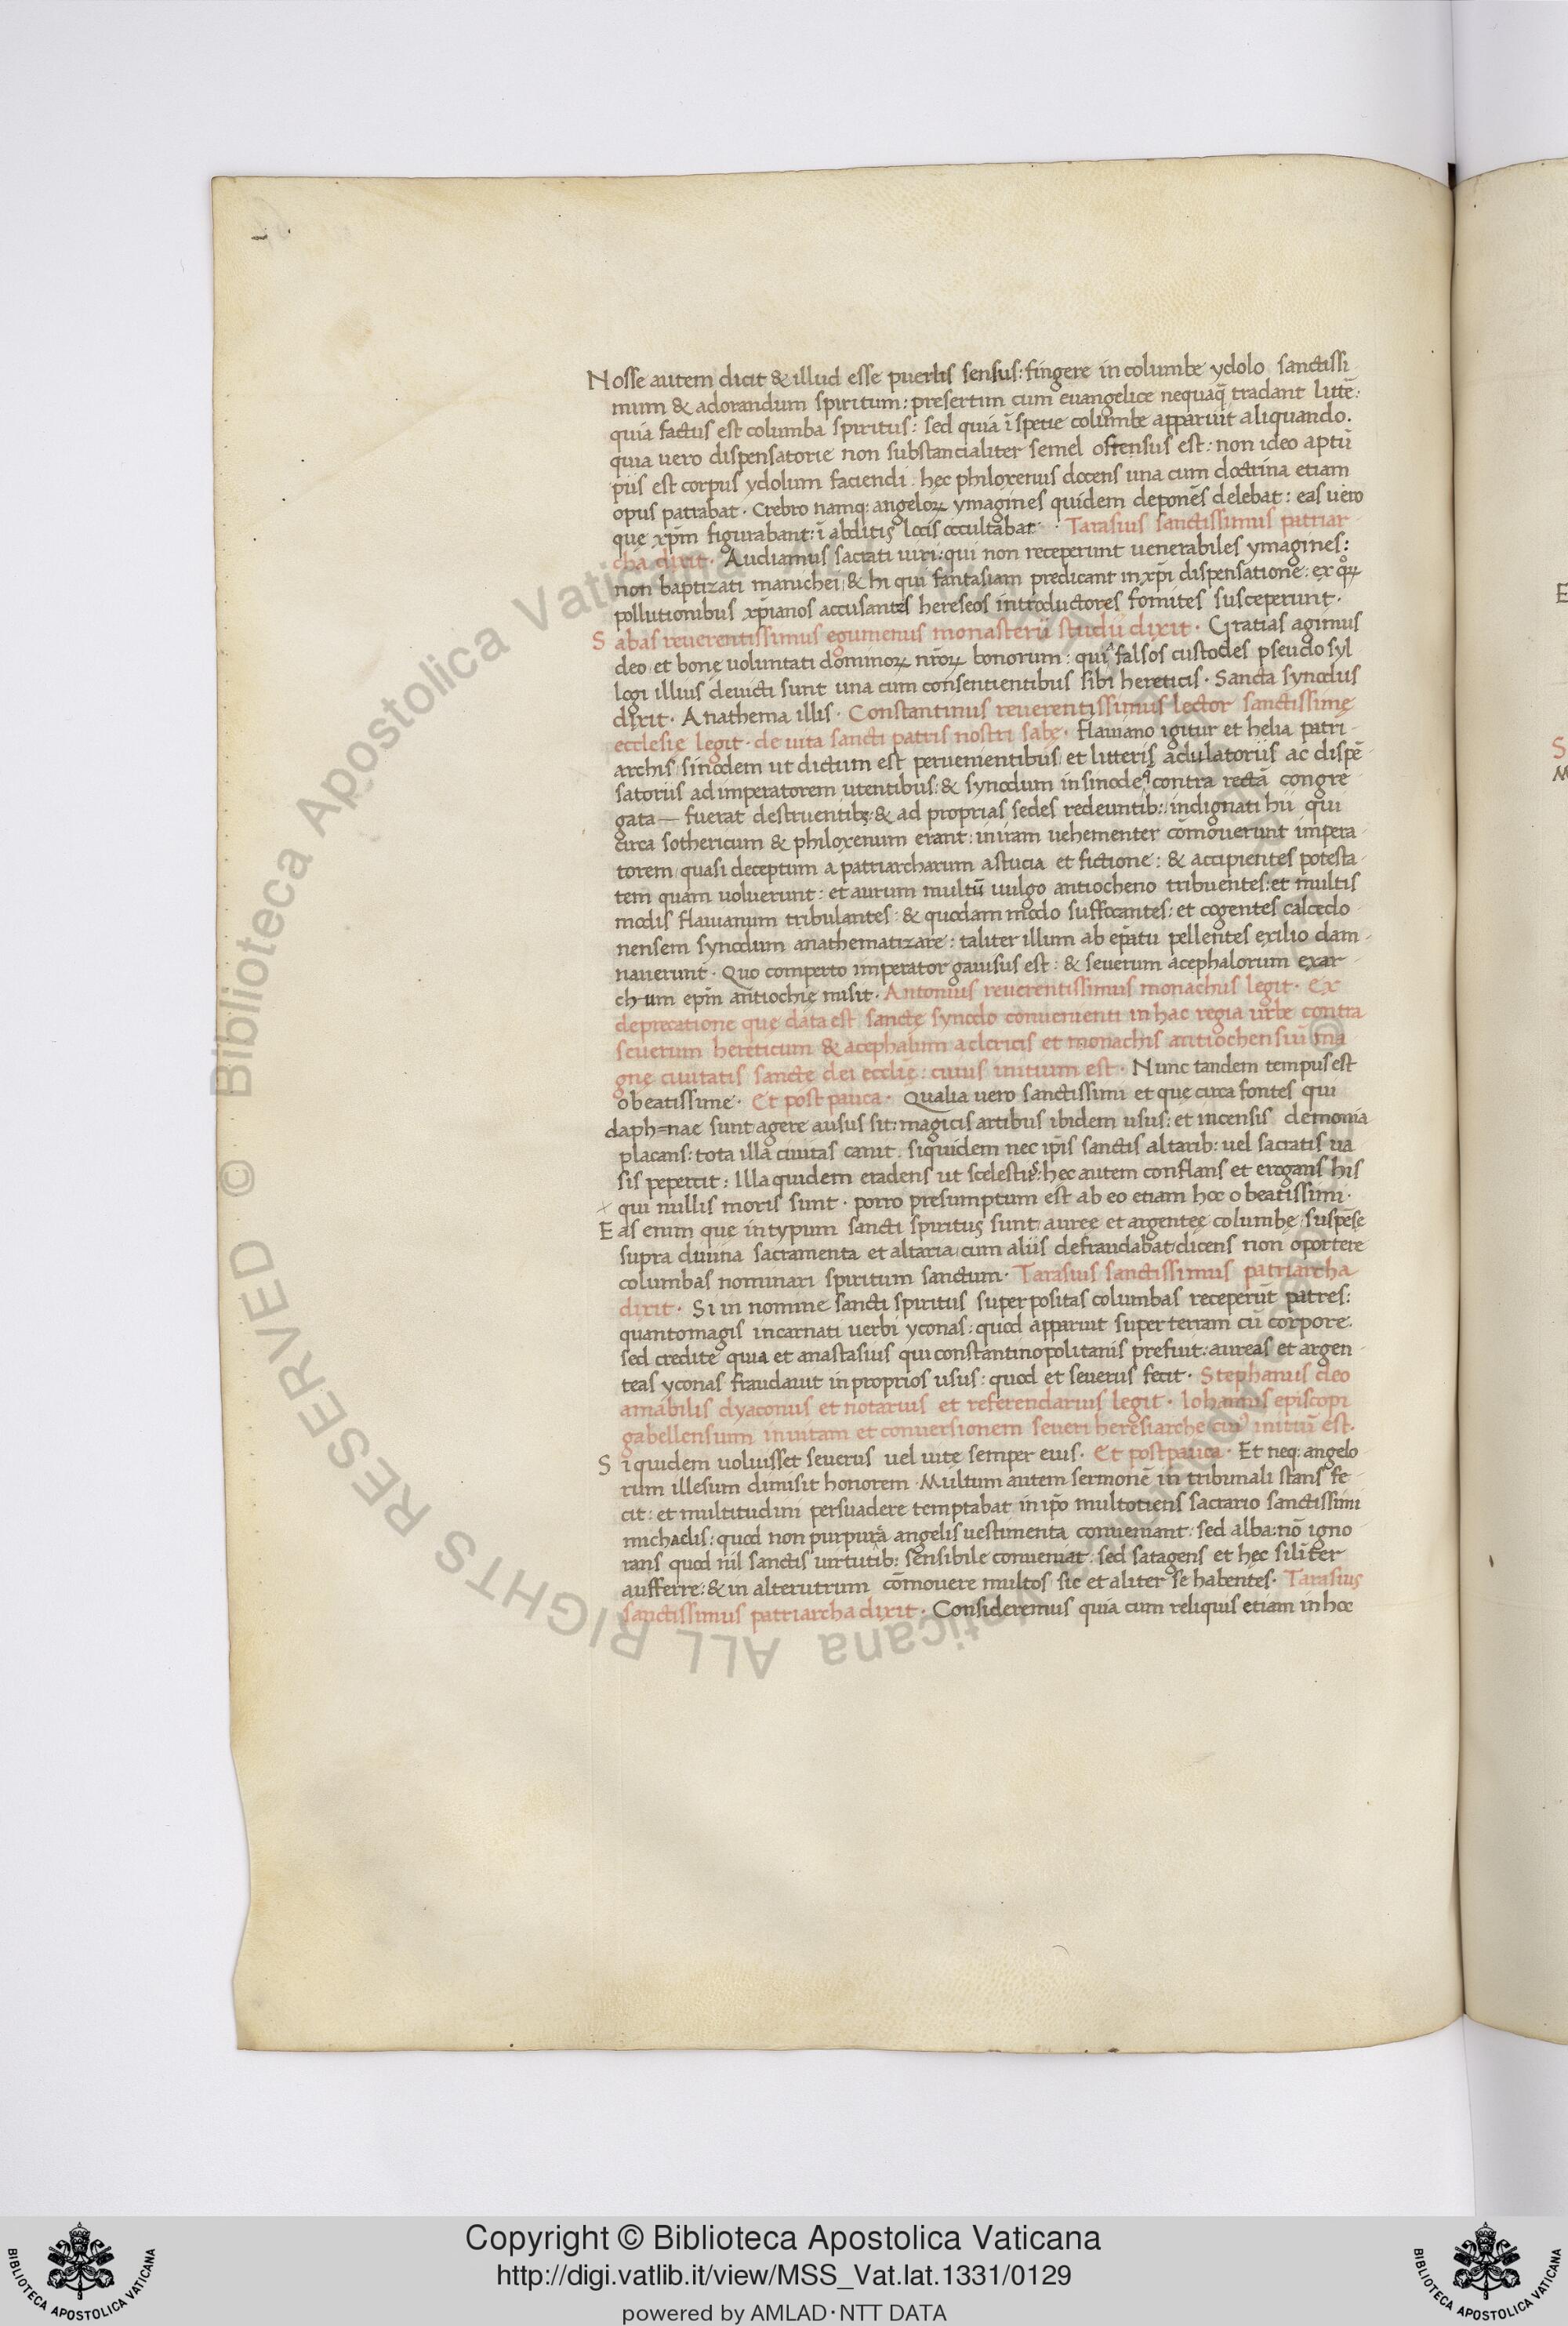 Nosse autem dicit & illud esse puerilis sensus: fingere in columbe ydolo sanctissi
mum & adorandum spiritum: presertim cum euangelice nequaq̃ tradant litte᷒:
quia factus est columba spiritus: sed quia ĩ spetie columbe apparuit aliquando.
quia uero dispensatorie non substancialiter semel ostensus est: non ideo aptũ
pus est corpus ydolum faciendi: hec philoxenus docens una cum doctrina etiam
opus patrabat. Crebro namq: angeloꝝ ymagines quidem deponẽs delebat: eas uero
que xp̃m figurabant: ĩ abditis locis occultabat. Tarasius sanctissimus patriar
cha dixit. Audiamus sacrati uiri: qui non receperunt uenerabiles ymagines:
non baptizati manichei, & hi qui fantasiam predicant in xp̃i dispensatione: ex qͦꝝ
pollutionibus xp̃ianos accusantes hereseos introductores fomites susceperunt.
Sabas reuerentissimus egumenus monasterii studii dixit. Gratias agimus
deo, et bonę uoluntati dominoꝝ nr̃oꝝ bonorum: quia falsos custodes pseudo syl
logi illius deuicti sunt una cum consentientibus sibi hereticis. Sancta synodus
dixit. Anathema illis. Constantinus reuerentissimus lector sanctissimę
ecclesię legit. de uita sancti patris nostri sabę. Flauiano igitur et helia patri
archis, sinodem ut dictum est peruenientibus, et litteris adulatoriis ac dispẽ
satoriis ad imperatorem utentibus: & synodum in sinode q̃ contra rectã congre
gata — fuerat destruentibꝫ: & ad proprias sedes redeuntib: indignati hii qui
circa sothericum & philoxenum erant: in iram uehementer cõmouerunt impera
torem, quasi deceptum a patriarcharum astucia et fictione: & accipientes potesta
tem quam uoluerunt: et aurum multũ uulgo antiocheno tribuentes: et multis
modis flauianum tribulantes: & quodam modo suffocantes: et cogentes calcedo
nensem synodum anathematizare: taliter illum ab ep̃atu pellentes exilio dam
nauerunt. Quo comperto imperator gauisus est: & seuerum acephalorum exar
ch um epm̃ antiochie misit. Antonius reuerentissimus monachus legit. Ex
deprecatione que data est sanctę synodo conuenienti in hac regia urbe contra
seuerum hereticum & acephalum a clericis et monachis antiochensiũ ma
gne ciuitatis sancte dei ecclię: cuius initium est. Nunc tandem tempus est
o beatissime. Et post pauca. Qualia uero sanctissimi et que circa fontes qui
daph=nae sunt agere ausus sit: magicis artibus ibidem usus: et incensis demonia
placans: tota illa ciuitas canit. siquidem nec ip̃is sanctis altarib: uel sacratis ua
sis pepercit: Illa quidem eradens ut scelestus: hec autem conflans et erogans his
qui nullis moris sunt. porro presumptum est ab eo etiam hoc o beatissimi.
Eas enim que in typum sancti spiritus sunt, auree et argentee columbę, suspẽse
supra diuina sacramenta et altaria, cum aliis defraudabat, dicens non oportere
columbas nominari spiritum sanctum. Tarasius sanctissimus patriarcha
dixit. Si in nomine sancti spiritus super positas columbas receperũt patres:
quanto magis incarnati uerbi yconas: quod apparuit super terram cũ corpore.
sed credite quia et anastasius qui constantinopolitanis prefuit: aureas et argen
teas yconas fraudauit in proprios usus: quod et seuerus fecit. Stephanus deo
amabilis dyaconus et notarius et referendarius legit. Iohannis episcopi
gabellensium in uitam et conuersionem seueri heresiarche cui᷒ initiũ est.
Siquidem uoluisset seuerus uel uite semper eius. Et post pauca. Et neq: angelo
rum illesum dimisit honorem. Multum autem sermonẽ in tribunali stans fe
cit: et multitudini persuadere temptabat in ip̃o multotiens sacrario sanctissimi
michaelis: quod non purpura angelis uestimenta conueniant: sed alba: nõ igno
rans quod nil sanctis uirtutib: sensibile conueniat: sed satagens et hęc silĩter
aufferre: & in alterutrum cõmouere multos, sic et aliter se habentes. Tarasius
sanctissimus patriarcha dixit. Consideremus quia cum reliquis etiam in hoc
E
S
M
Biblioteca Apostolica Vaticana
© Biblioteca Apostolica Vaticana ALL RIGHTS RESERVED
Copyright © Biblioteca Apostolica Vaticana
http://digi.vatlib.it/view/MSS_Vat.lat.1331/0129
powered by AMLAD·NTT DATA
BIBLIOTECA APOSTOLICA VATICANA
BIBLIOTECA APOSTOLICA VATICANA